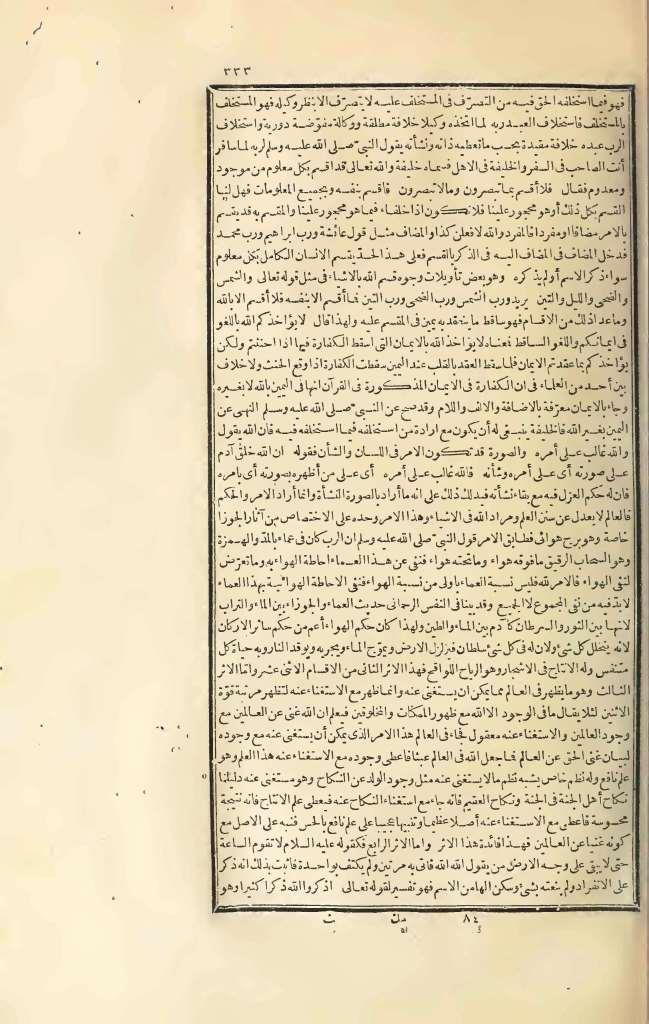 ٣٣٣
فهو فيما استخلفه الحق فيه من التصرف فى المستخلف عليه لا يتصرف الا بنظر وكيله فهو المستخلف
بالمستخلف فاستخلاف العبد ربه لما اتخذه وكيلا خلافة مطلقة ووكالة مفوّضة دورية واستخلاف
الرب عبده خلافة مقيدة بحسب ما تعطيه ذاته ونشأته يقول النبىّ صلى الله عليه وسلم لربه لما سافر
أنت الصاحب فى السفر والخليفة فى الاهل فسماه خليفة والله تعالى قد اقسم بكل معلوم من موجود
ومعدوم فقال فلا أقسم بما تبصرون وما لا تبصرون فاقسم بنفسه وبجميع المعلومات فهل لنا
القسم بكل ذلك أو هو محجور علينا فلا نكون اذا خلفاء فيما هو محجور علينا والمقسم به قد يقسم
بالامر مضافا ومفردا فالمفرد والله لافعلن كذا والمضاف مثل قول عائشة ورب ابراهيم ورب محمد
فدخل المضاف فى المضاف اليه فى الذكر بالقسم فعلى هذا الحدّ يقسم الانسان الكامل بكل معلوم
سواء ذكر الاسم أو لم يذكره وهو بعض تأويلات وجوه قسم الله بالاشياء فى مثل قوله تعالى والشمس
والضحى والليل والتين يريد ورب الشمس ورب الضحى ورب التين فما أقسم الا بنفسه فلا أقسم الا بالله
وما عدا ذلك من الاقسام فهو ساقط ما ينعقد به يمين فى المقسم عليه ولهذا قال لا يؤاخذكم الله باللغو
فى ايمانكم واللغو الساقط فمعناه لا يؤاخذ الله بالايمان التى اسقط الكفارة فيها اذا احنثتم ولكن
يؤاخذكم بما عقدتم الايمان فلما سقط العقد بالقلب عند اليمين سقطت الكفارة اذا وقع الحنث ولا خلاف
بين أحد من العلماء فى ان الكفارة فى الايمان المذكورة فى القرآن انها فى اليمين بالله لا بغيره
وجاء بالايمان معرّفة بالاضافة والالف واللام وقد صح عن النبىّ صلى الله عليه وسلم النهى عن
اليمين بغير الله فالخليفة ينبغى له أن يكون مع ارادة من استخلفه فيما استخلفه فيه فان الله يقول
والله غالب على أمره والصورة قد تكون الامر فى اللسان والشأن فقوله ان الله خلق آدم
على صورته أى على أمره وشأنه فالله غالب على أمره أى على من أظهره بصورته أى بامره
فان له حكم العزل فيه مع بقاء نشأته فيدلك ذلك على انه ما أراد بالصورة النشأة وانما أراد الامر والحكم
فالعالم لا يعدل عن سنن العلم ومراد الله فى الاشياء وهذا الامر وحده على الاختصاص من آثار الجوزا
خاصة وهو برج هوائى فطابق الامر قول النبى صلى الله عليه وسلم ان الرب كان فى عماء بالمدّ والهمزة
وهو السحاب الرقيق ما فوقه هواء وما تحته هواء فنفى عن هذا العماء احاطة الهواء به وما تعرّض
لنفى الهواء فالامر لله فليس نسبة العماء باولى من نسبة الهواء فنفى الاحاطة الهوائية بهذا العماء
لابدّ فيه من نفى المجموع لا الجميع وقد بينا فى النفس الرحمانى حديث العماء والجوزاء بين الماء والتراب
لانها بين الثور والسرطان كآدم بين الماء والطين ولهذا كان حكم الهواء أعم من حكم سائر الاركان
لانه يتخلل كل شئ ولان له فى كل شئ سلطان فيزلزل الارض ويموّج الماء ويجريه ويوقد النار وبه حياة كل
متنفس وله الانتاج فى الاشجار وهو الرياح اللواقح فهذا الاثر الثانى من الاقسام الاثنى عشر واما الاثر
الثالث وهو ما يظهر فى العالم مما يمكن ان يستغنى عنه وانما ظهر مع الاستغناء عنه لتظهر مرتبة قوّة
الاثنين لئلا يقال ما فى الوجود الا الله مع ظهور الممكات والمخلوقين فيعلم ان الله غنى عن العالمين مع
وجود العالمين والاستغناء عنه معقول فجاء فى العالم هذا الامر الذى يمكن أن يستغنى عنه مع وجوده
لبيان غنى الحق عن العالم فما جعل الله فى العالم عبثا فاعطى وجوده مع الاستغناء عنه هذا العلم وهو
علم نافع وله نظم خاص يشبه نظم ما لا يستغنى عنه مثل وجود الولد عن النكاح وهو مستغنى عنه دليلنا
نكاح أهل الجنة فى الجنة ونكاح العقيم فانه جاء مع استغناء النكاح عنه فيعطى علم الانتاج فانه نتيجة
محسوسة فاعطى مع الاستغناء عنه أصلا عظيما وتنبيها عجيبا على علم نافع بالحس فنبه على الاصل مع
كونه غنيا عن العالمين فهذا فائدة هذا الاثر واما الاثر الرابع فكقوله عليه السلام لا تقوم الساعة
حتى لا يبقى على وجه الارض من يقول الله الله فاتى به مرتين ولم يكتف بواحدة فاثبت بذلك انه ذكر
على الانفراد ولم ينعته بشئ وسكن الهاء من الاسم فهو تفسير لقوله تعالى اذكروا الله ذكرا كثيرا وهو
٨٤ مك ث